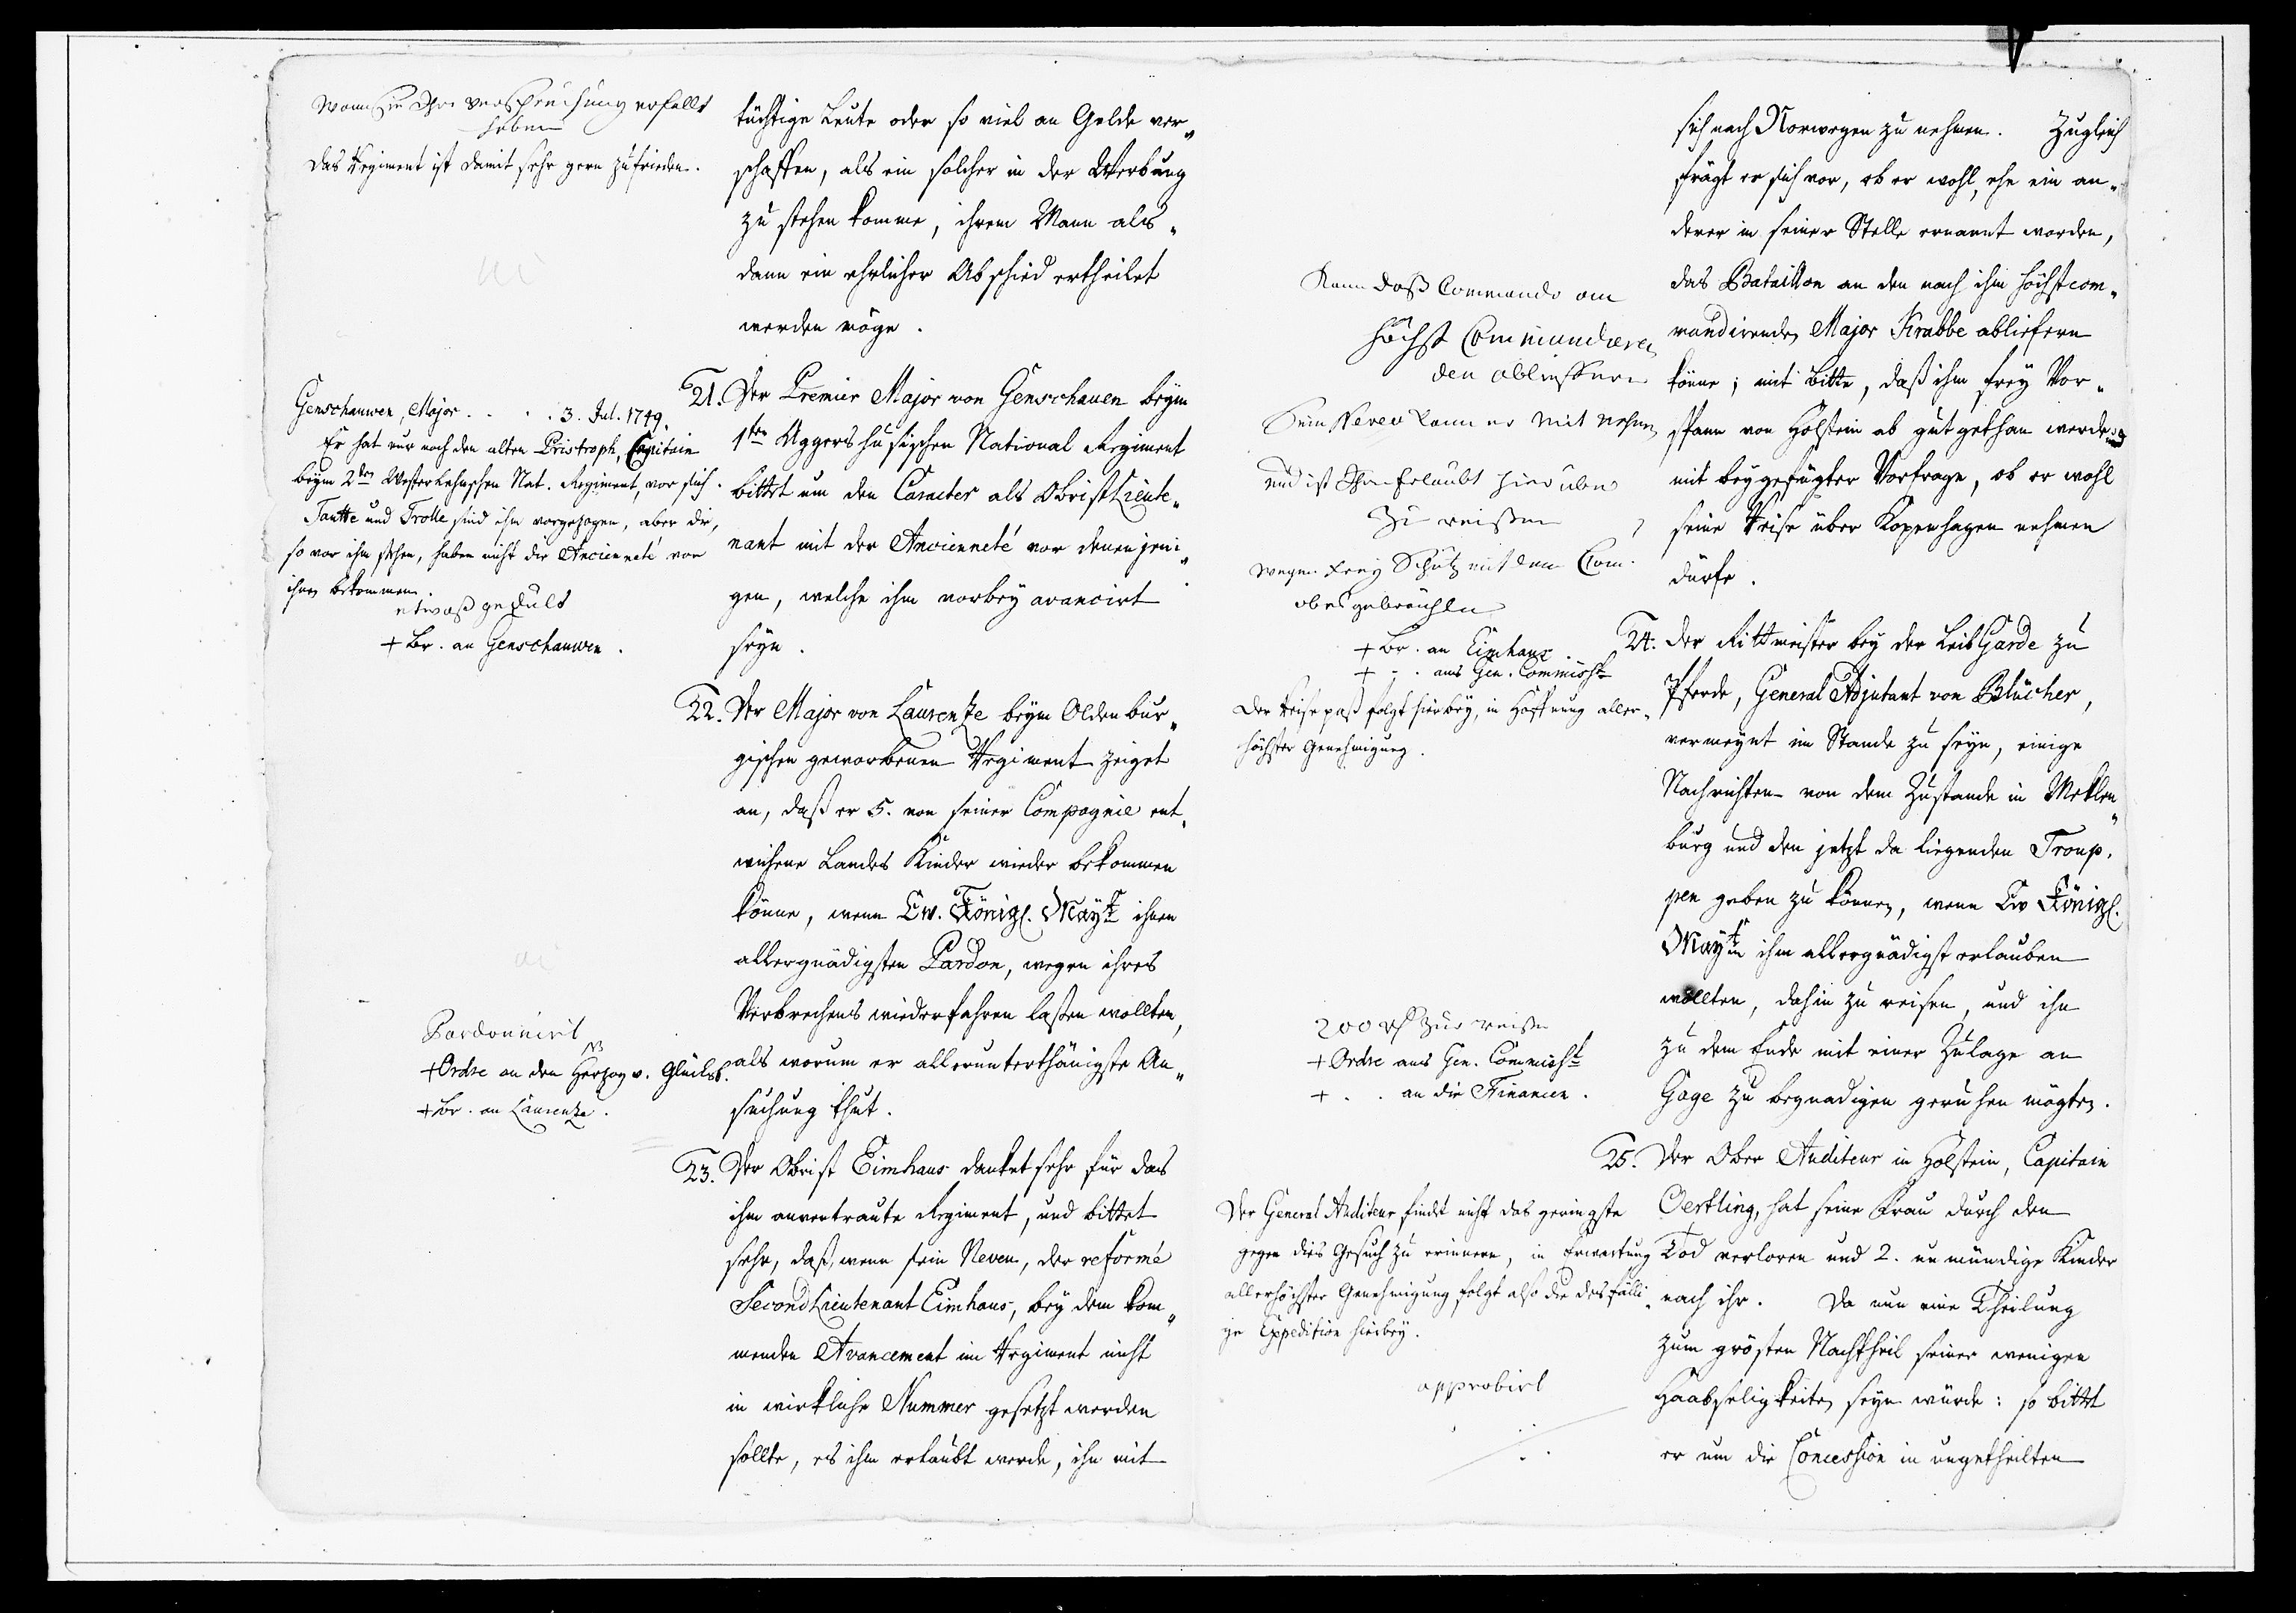 wann Sie Ihr versprechung erfüllt
haben
das Regiment ist damit sehr gern zufrieden.
tüchtige Leute oder so viel an Gelde ver„
schaffen, als ein solcher in der Werbung
zu stehen komme, ihrem Mann als„
dann ein ehrlicher Abschied ertheilet
werden möge.
Genschauwen, Major . . . . 3. Jul. 1749.
Er hat nur noch den alten Pristroph, Capitain
beym 2den Westerlehnschen Nat. Regiment, vor sich.
Tautte und Trolle sind ihm vorgezogen, aber die,
so vor ihm stehen, haben nicht die Ancienneté von
ihnen bekommen.
etwaß gedult
+ Br. an Genschauwen.
21. Der Premier Major von Genschauen beym
1ten Aggershusischen National Regiment
bittet um den Caracter als ObristLieute„
nant mit der Ancienneté vor denenjeni„
gen, welche ihm vorbey avancirt
seyn.
22. Der Major von Laurentze beym Oldenbur„
gischen geworbenen Regiment zeiget
an, daß er 5. von seiner Compagnie ent„
wichene Landes Kinder wieder bekommen
könne, wenn Ew. Königl. Mayt. ihnen
allergnädigsten Pardon, wegen ihres
Verbrechens wiederfahren laßen wollten,
als worum er allerunterthänigste An„
suchung thut.
Pardonnirt
+ Ordre an den Herzog v. Glücksb.
+ Br. an Laurentze.
23. Der Obrist Eimhaus danket sehr für das
ihm anvertraute Regiment, und bittet
sehr, daß, wenn sein Neveu, der reformé
SecondLieutenant Eimhaus, bey dem kom„
menden Avancement im Regiment nicht
in wirkliche Nummer gesetzt werden
sollte, es ihm erlaubt werde, ihn mit
sich nach Norwegen zu nehmen. Zugleich
frägt er sich vor, ob er wohl, ehe ein an„
derer in seiner Stelle ernannt worden,
das Bataillon an den nach ihm höchstcom„
mandirenden Major Krabbe abliefern
könne; mit Bitte, daß ihm frey Vor„
spann von Holstein ab gut gethan werde,
mit beygefügter Vorfrage, ob er wohl
seine Reise über Koppenhagen nehmen
dürfe.
Kann daß Commando am
höchst Commanderen
den abliefferen
Sein Neveu kann er mit nehmen
und ist Ihm erlaubt hier über
zu reißen
wegen freÿ Schütz mit dem Com.
ob es gebräuchlich
+ Br. an Eimhaus.
+ - . ans Gen. Commissrt
Der Reisepaß folgt hierbey, in Hoffnung aller„
höchster Genehmigung.
24. Der Rittmeister bey der LeibGarde zu
Pferde, General Adjutant von Blücher,
vermeynt im Stande zu seyn, einige
Nachrichten von dem Zustande in Meklen„
burg und den jetzt da liegenden Troup„
pen geben zu können, wenn Ew Königl.
Mayt. ihm allergnädigst erlauben
wollten, dahin zu reisen, und ihn
zu dem Ende mit einer Zulage an
Gage zu begnadigen geruhen mögten.
200 rl zur reiße
+ Ordre ans Gen. Commissrt
+ . . an die Financen.
25. Der Ober Auditeur in Holstein, Capitain
Oertling, hat seine Frau durch den
Tod verloren und 2. unmündige Kinder
nach ihr. Da nun eine Theilung
zum grösten Nachtheil seiner wenigen
Haabseligkeiten seyn würde: so bittet
er um die Concession in ungetheilten
Der General Auditeur findet nicht das geringste
gegen dies Gesuch zu erinnern, in Erwartung
allerhöchster Genehmigung folgt also die desfälli„
ge Expedition hierbey.
approbirt